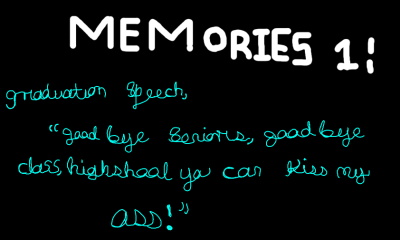 MEMORIES 1!
graduation speech,
"good bye seniors, goodbye
class, highshool ya can kiss my
ass!"